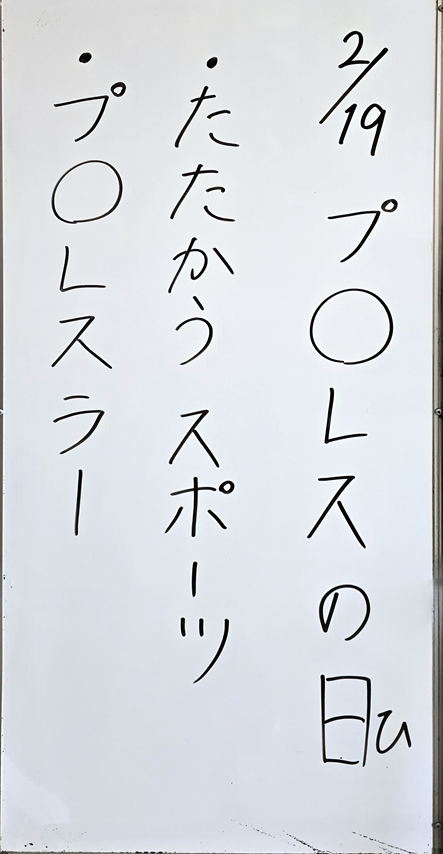 2/19 プ○レスの日ひ
・たたかうスポーツ
・プ○レスラー